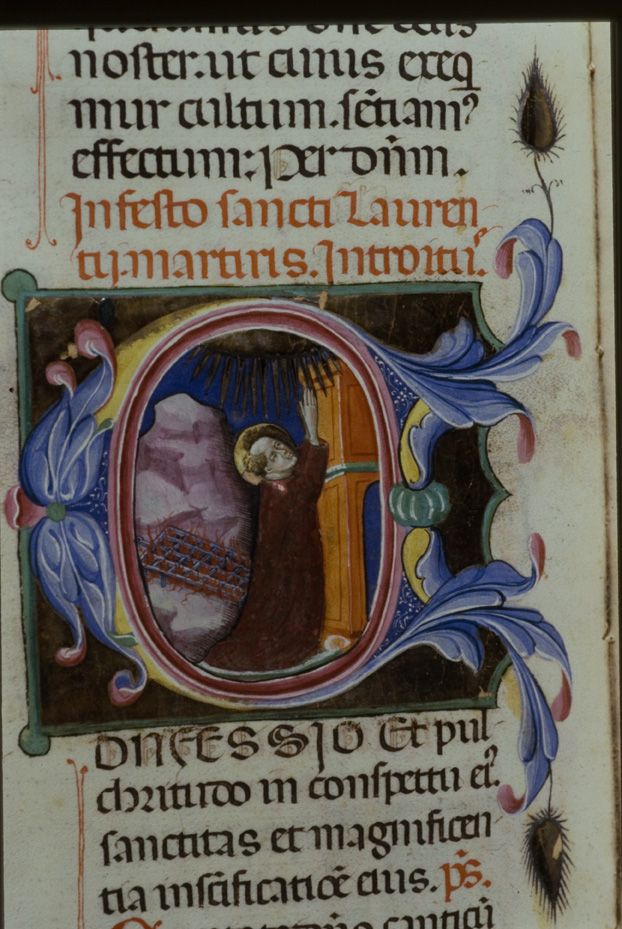 noster. ut cuius exeq
mur cultum. sēciam᷒
effectum: Per dn̄m.
In festo sancti Lauren
tij. martiris. Introitu᷒.
ONFESSIO Et pul
chritudo in conspectu ei᷒.
sanctitas et magnificen
tia in scīficatiōe eius. p̄s.